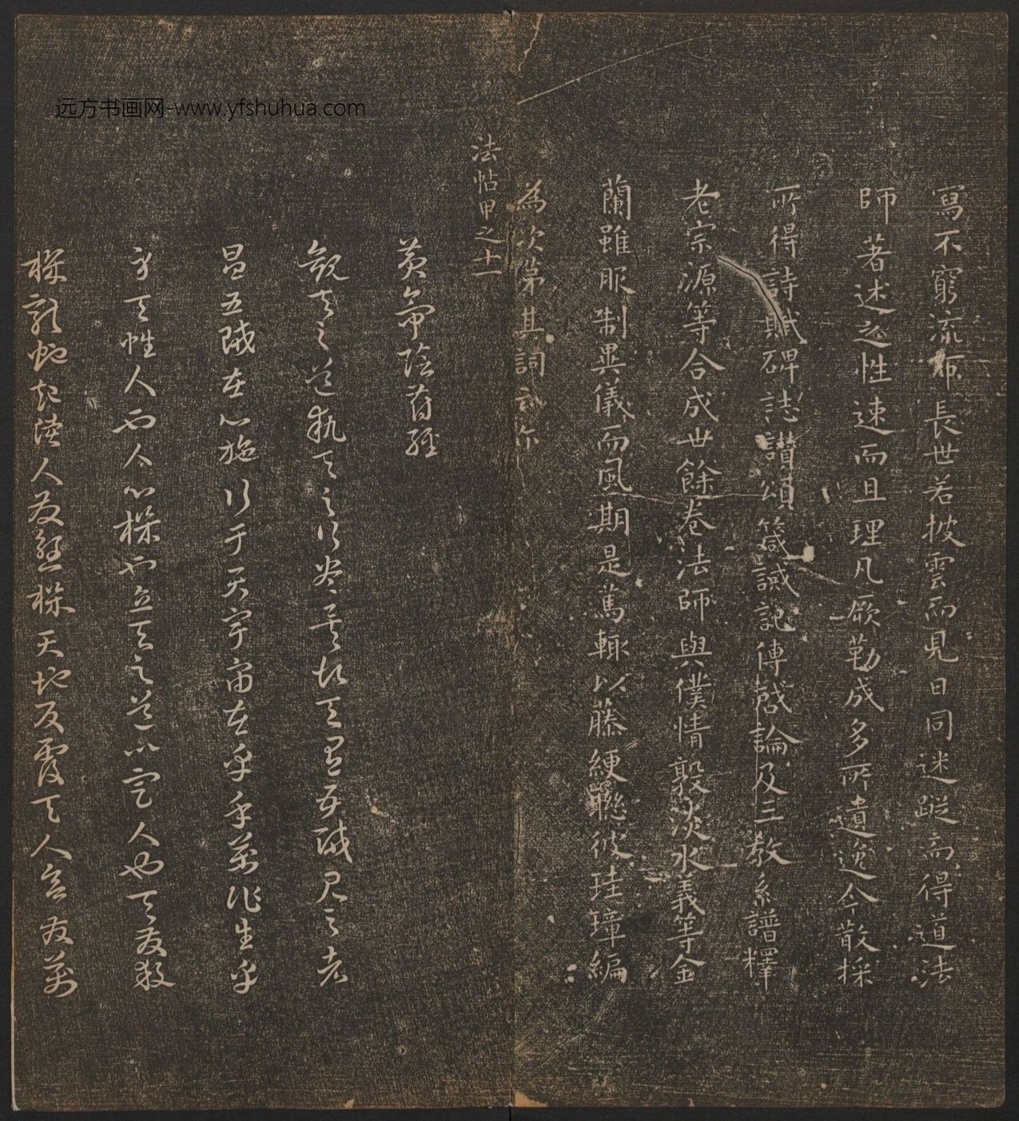 远方书画网-www.yfshuhua.com
寫不窮流布長世若披雲而見日同迷蹤而得道法
師著述之性速而且理凡厥勒成多所遺逸今散採
所得詩賦碑誌讃頌箴誡記傳啓論及三教系譜釋
老宗源等合成世餘卷法師與僕情敦淡水義等金
蘭雖服制異儀而風期是篤輒以藤綆聯彼珪璋編
為次第其詞云尔
法帖甲之十一
黄帝陰符經
觀天之道執天之行盡矣故天有五賊見之者
昌五賊在心施行于天宇宙在乎手萬化生乎
身天性人也人心機也立天之道以定人也天發殺
機龍蛇起陸人發殺機天地反覆天人合發萬